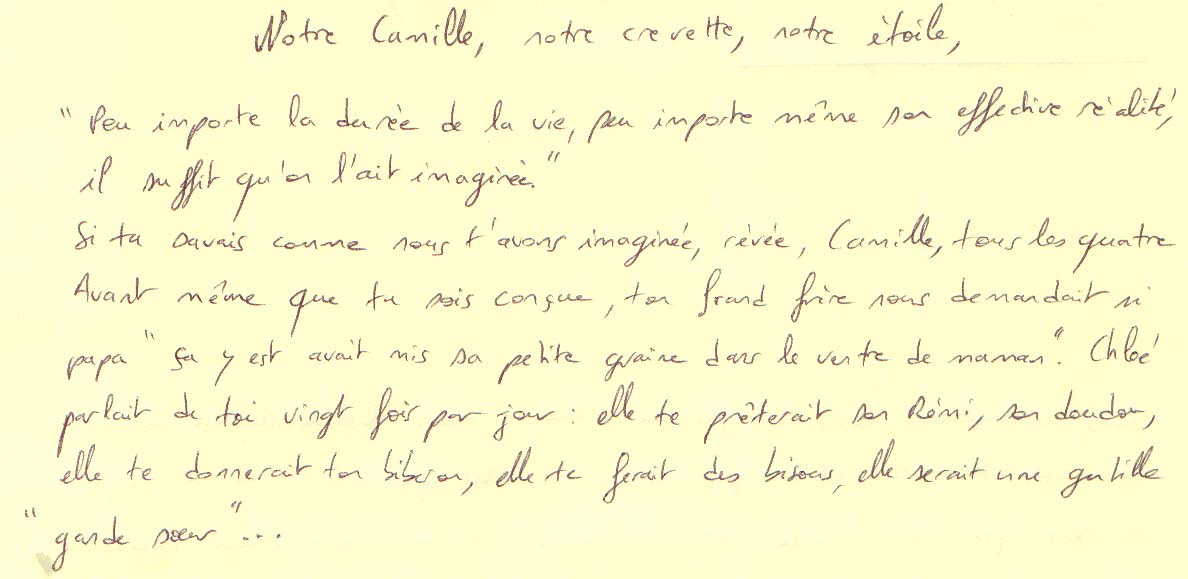 Notre Camille, notre crevette, notre étoile,
" Peu importe la durée de la vie, peu importe même son effective réalité,
il suffit qu'on l'ait imaginée."
Si tu savais comme nous t'avons imaginée, rêvée, Camille, tous les quatre
Avant même que tu sois conçue, ton grand frère nous demandait si
papa " ça y est avait mis sa petite graine dans le ventre de maman". Chloé
parlait de toi vingt fois par jour : elle te prêterait son Rémi, son doudou,
elle te donnerait ton biberon, elle te ferait des bisous, elle serait une gentille
" gande sœur "...